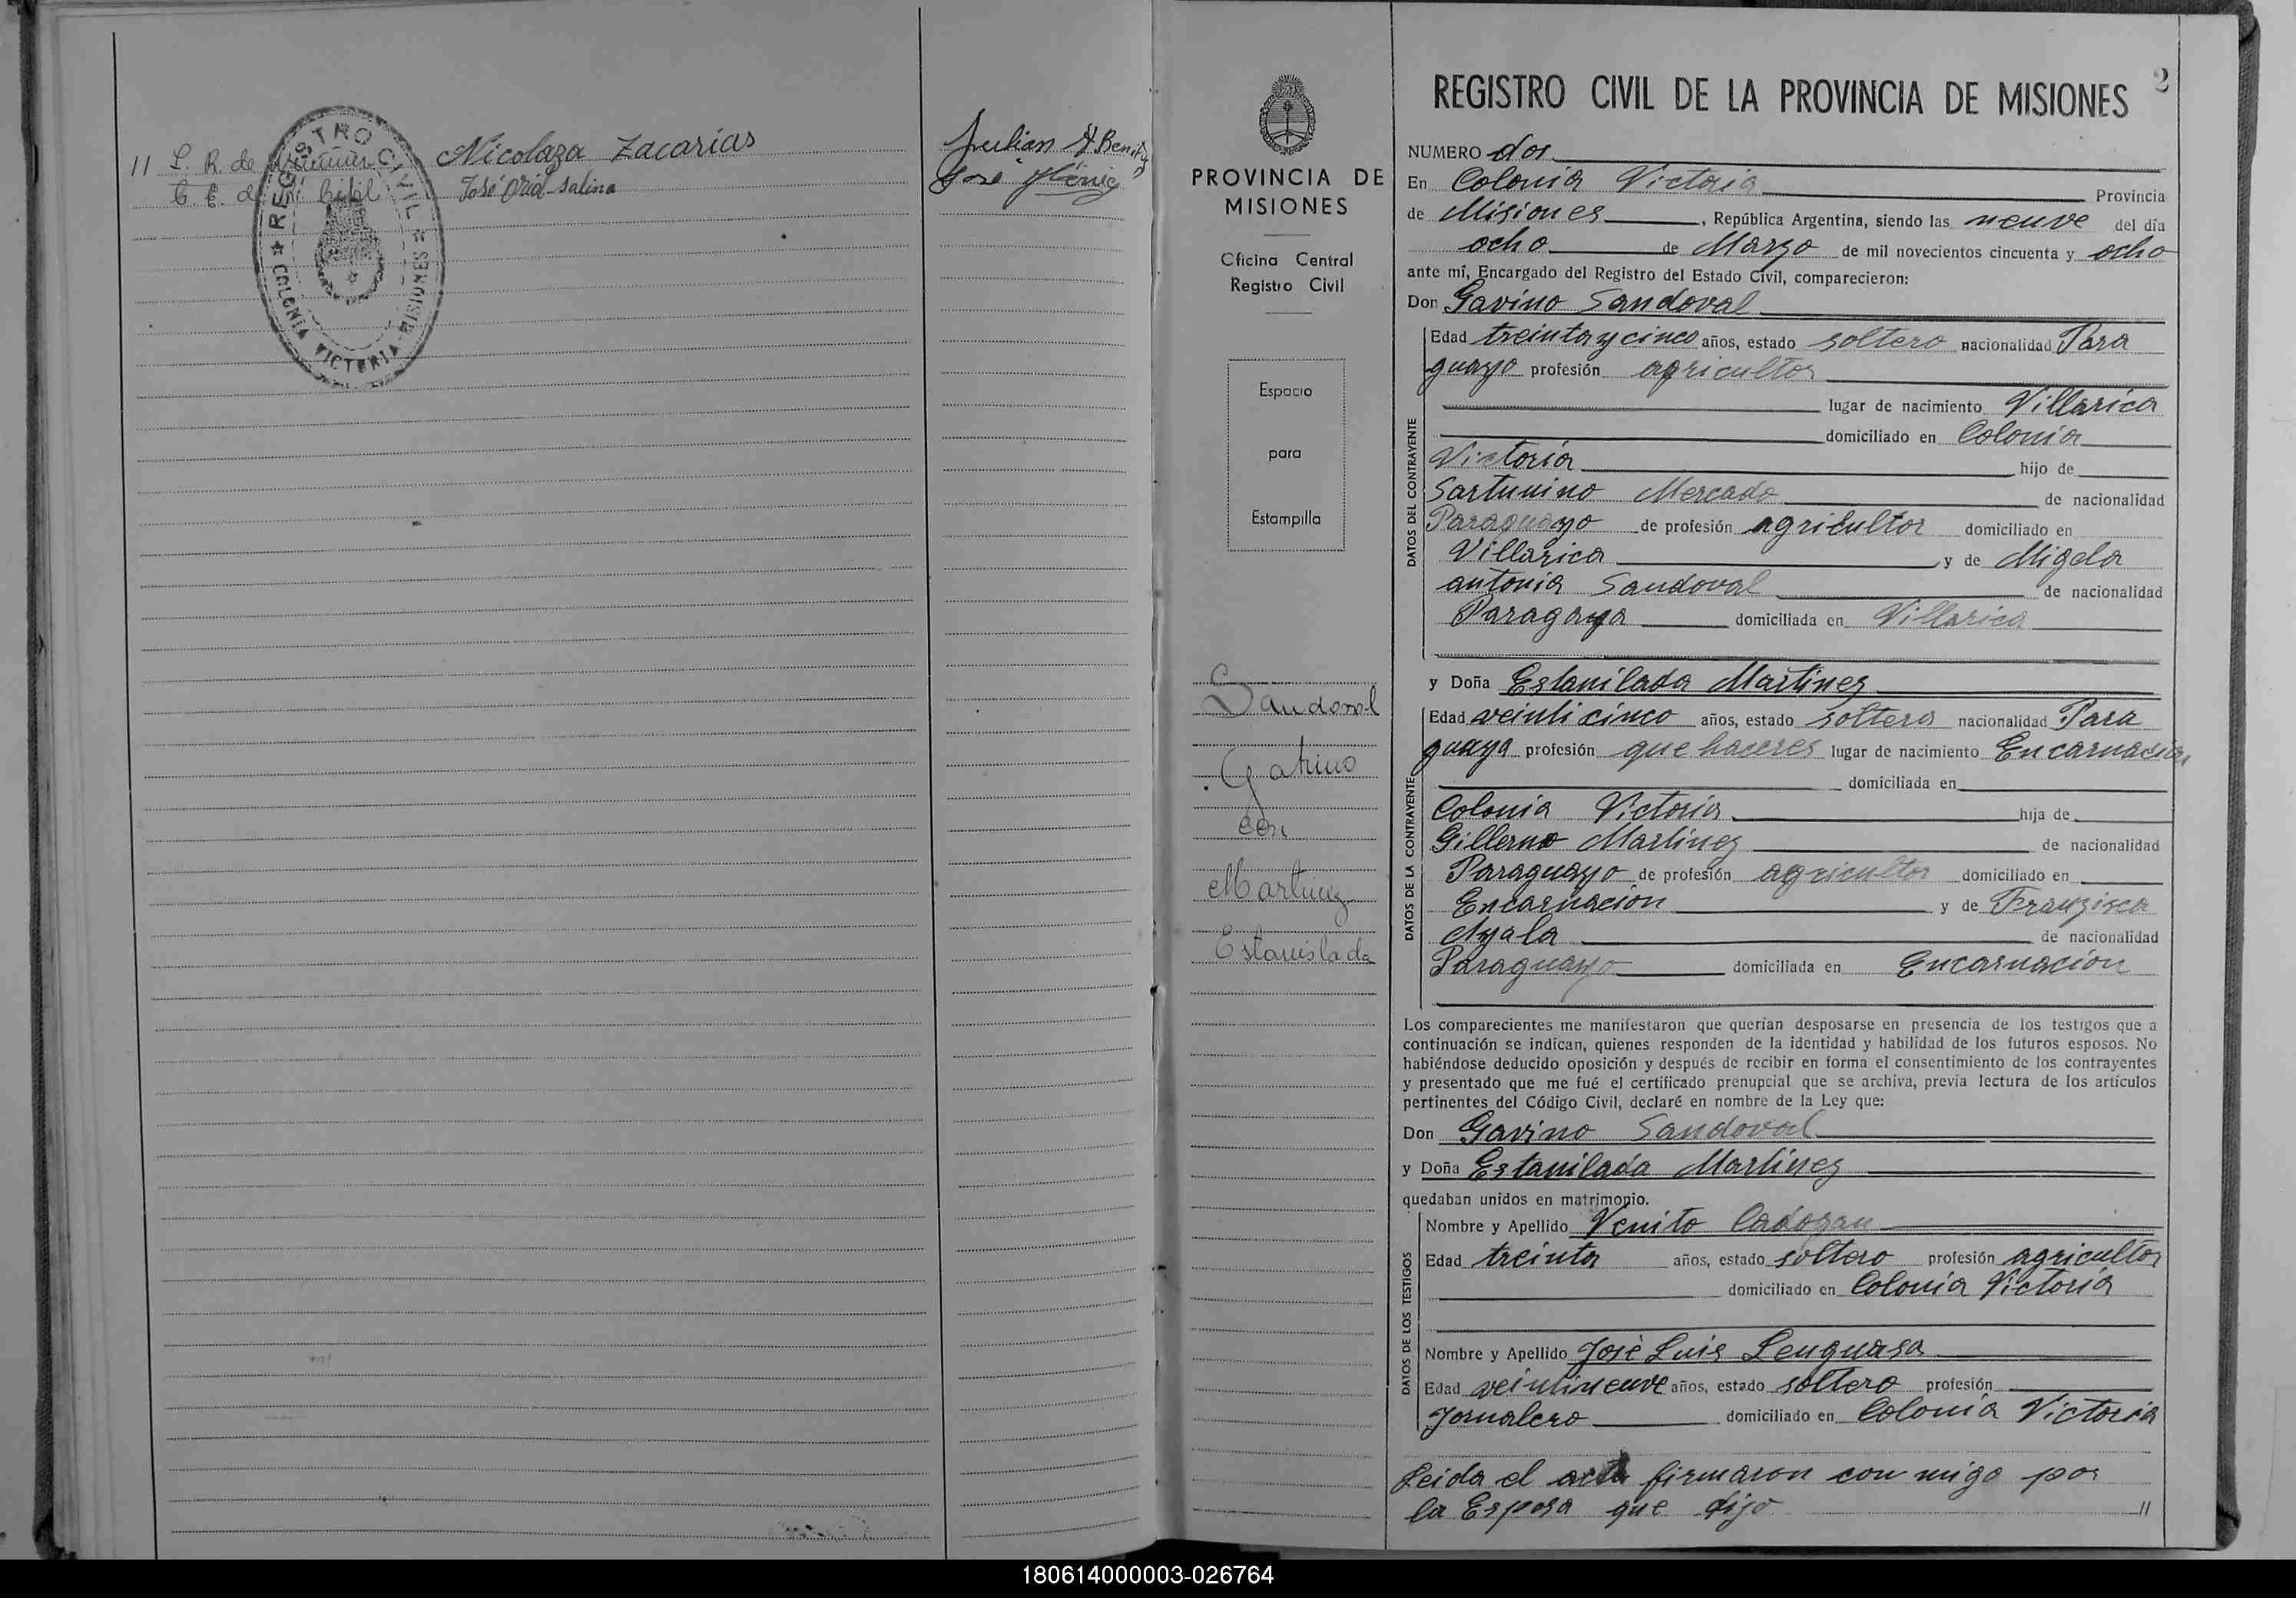 11 L. R. de
Nicolaza Zacarias
Julian A. Benitez
C. E. del
José Orid Salina
José
REGISTRO CIVIL
MISIONES
COLONIA VICTORIA
PROVINCIA DE
MISIONES
Oficina Central
Registro Civil
Espacio
para
Estampilla
Sandoval
Gavino
con
Martinez
Estanislada
2
REGISTRO CIVIL DE LA PROVINCIA DE MISIONES
NUMERO dos
En Colonia Victoria Provincia
de Misiones, República Argentina, siendo las nueve del día
ocho de Marzo de mil novecientos cincuenta y ocho
ante mí, Encargado del Registro del Estado Civil, comparecieron:
Don Gavino Sandoval
DATOS DEL CONTRAYENTE
Edad treinta y cinco años, estado soltero nacionalidad Para
guayo profesión agricultor
lugar de nacimiento Villarica
domiciliado en Colonia
Victoria hijo de
Sartunino Mercado de nacionalidad
Paraguayo de profesión agricultor domiciliado en
Villarica y de Migela
antonia Sandoval de nacionalidad
Paragaya domiciliada en Villarica
y Doña Estanilada Martinez
DATOS DE LA CONTRAYENTE
Edad veinti cinco años, estado soltera nacionalidad Para
guaya profesión que haceres lugar de nacimiento Encarnacion
domiciliada en
Colonia Victoria hija de
Gillermo Martinez de nacionalidad
Paraguayo de profesión agricultor domiciliado en
Encarnacion y de Franzisca
Ayala de nacionalidad
Paraguayo domiciliada en Encarnacion
Los comparecientes me manifestaron que querían desposarse en presencia de los testigos que a
continuación se indican, quienes responden de la identidad y habilidad de los futuros esposos. No
habiéndose deducido oposición y después de recibir en forma el consentimiento de los contrayentes
y presentado que me fué el certificado prenupcial que se archiva, previa lectura de los artículos
pertinentes del Código Civil, declaré en nombre de la Ley que:
Don Gavino Sandoval
y Doña Estanilada Martinez
quedaban unidos en matrimonio.
DATOS DE LOS TESTIGOS
Nombre y Apellido Venito Cadogan
Edad treinta años, estado soltero profesión agricultor
domiciliado en Colonia Victoria
Nombre y Apellido José Luis Lenguasa
Edad veintinueve años, estado soltero profesión
Jornalero domiciliado en Colonia Victoria
Leida el acta firmaron con migo por
la Esposa que dijo //
180614000003-026764